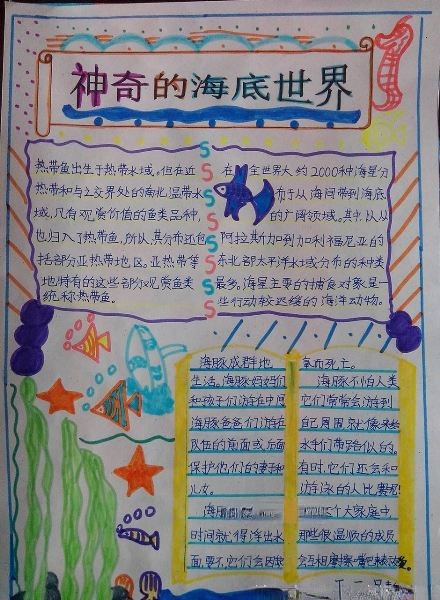 神奇的海底世界
热带鱼出生于热带水域。但在近
热带和与之交界处的南北温带水
域,凡有观赏价值的鱼类品种,
也归入了热带鱼,所以其分布还包
括部分亚带地区。亚热带等
地特有的这些部分观赏鱼类
统称热带鱼。
在全世界大约2000种海星分
布于从海间带到海底
的广阔领域。其中以从
阿拉斯加到加利福尼亚的
东北部太平洋水域分布的种类
最多。海星主要的捕食对象是一
些行动较迟缓的海洋动物。
海豚成群地
生活。海豚妈妈们
和孩子们游在中间
海豚爸爸们游在
队伍的前面或后面
保护他们的妻子和
儿女。
海豚
时间就得浮出水
面,要不,它们会因缺
氧而死亡。
海豚不怕人类
它们常常会游到
自己周围就像来给
水手们带路似的。
有时,它们还会和
游泳的人比赛呢!
个大家庭中
那些很温顺的成员
会互相摩擦嘴